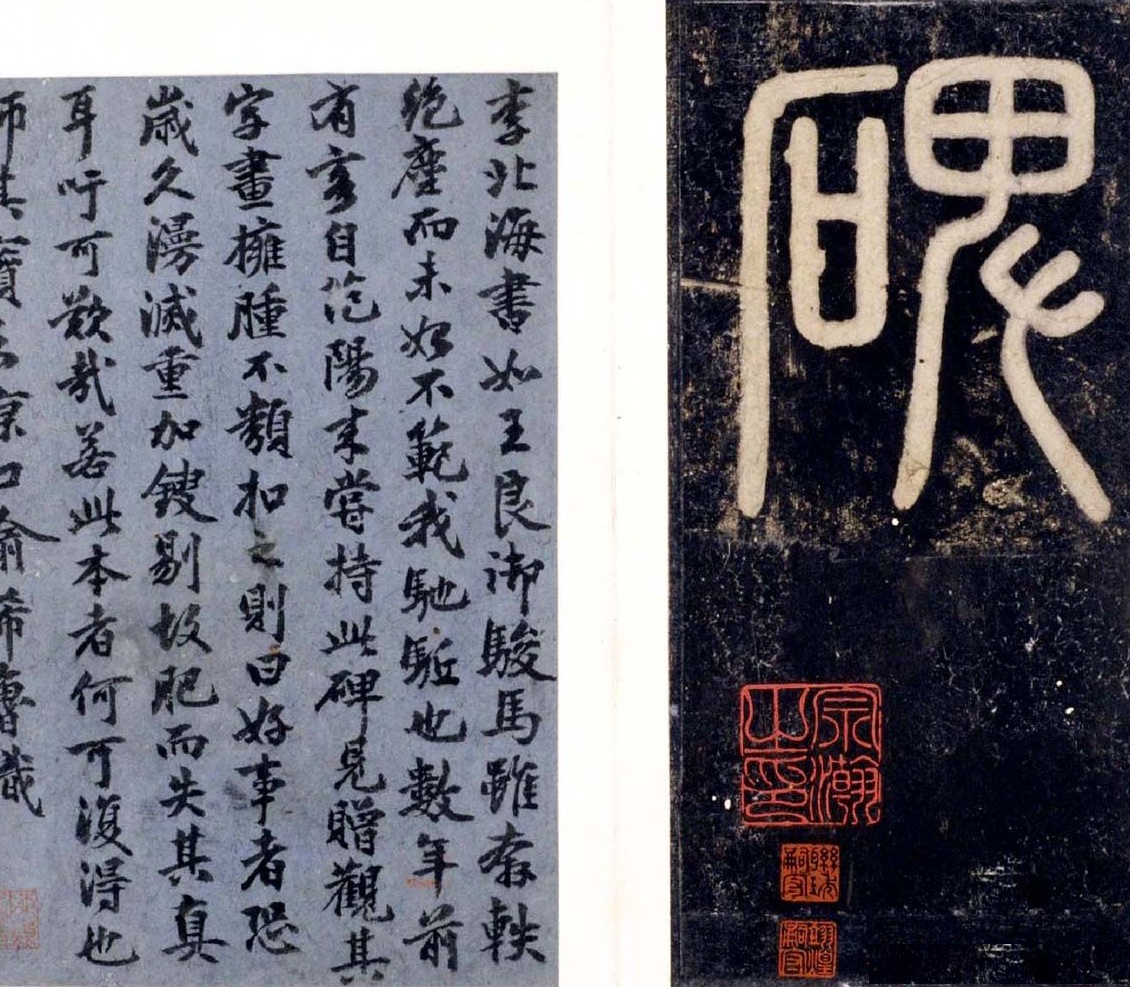 碑
宗瀚之印
聯琇嗣守
翊煌
李北海書如王良御駿馬雖奔軼
絶塵而未始不範我馳駈也數年前
有客自范陽來嘗持此碑見贈觀其
字畫擁腫不類扣之則曰好事者恐
歲久漫滅重加鎪剔故肥而失其真
耳吁可歎哉若此本者何可復得也
師其寶之京口俞希魯識